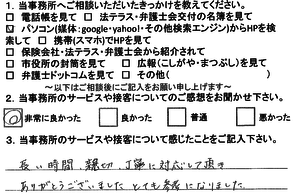 1. 当事務所へご相談いただいたきっかけを教えてください。
□ 電話帳を見て □ 法テラス・弁護士会交付の名簿を見て
☑ パソコン(媒体:google・yahoo!・その他検索エンジン)からHPを検
索して □ 携帯(スマホ)でHPを見て
□ 保険会社・法テラス・弁護士会から紹介されて
□ 市役所の封筒を見て □ 広報(こしがや・まつぶし)を見て
□ 弁護士ドットコムを見て □ その他( )
～以下はご相談後にご記入をお願い申し上げます～
2. 当事務所のサービスや接客についてのご感想をお聞かせ下さい。
非常に良かった 良かった 普通 悪かった
3. 当事務所のサービスや接客について感じたことをご記入下さい。
長い時間、親切、丁寧に対応して頂き
ありがとうございました とても参考になりました